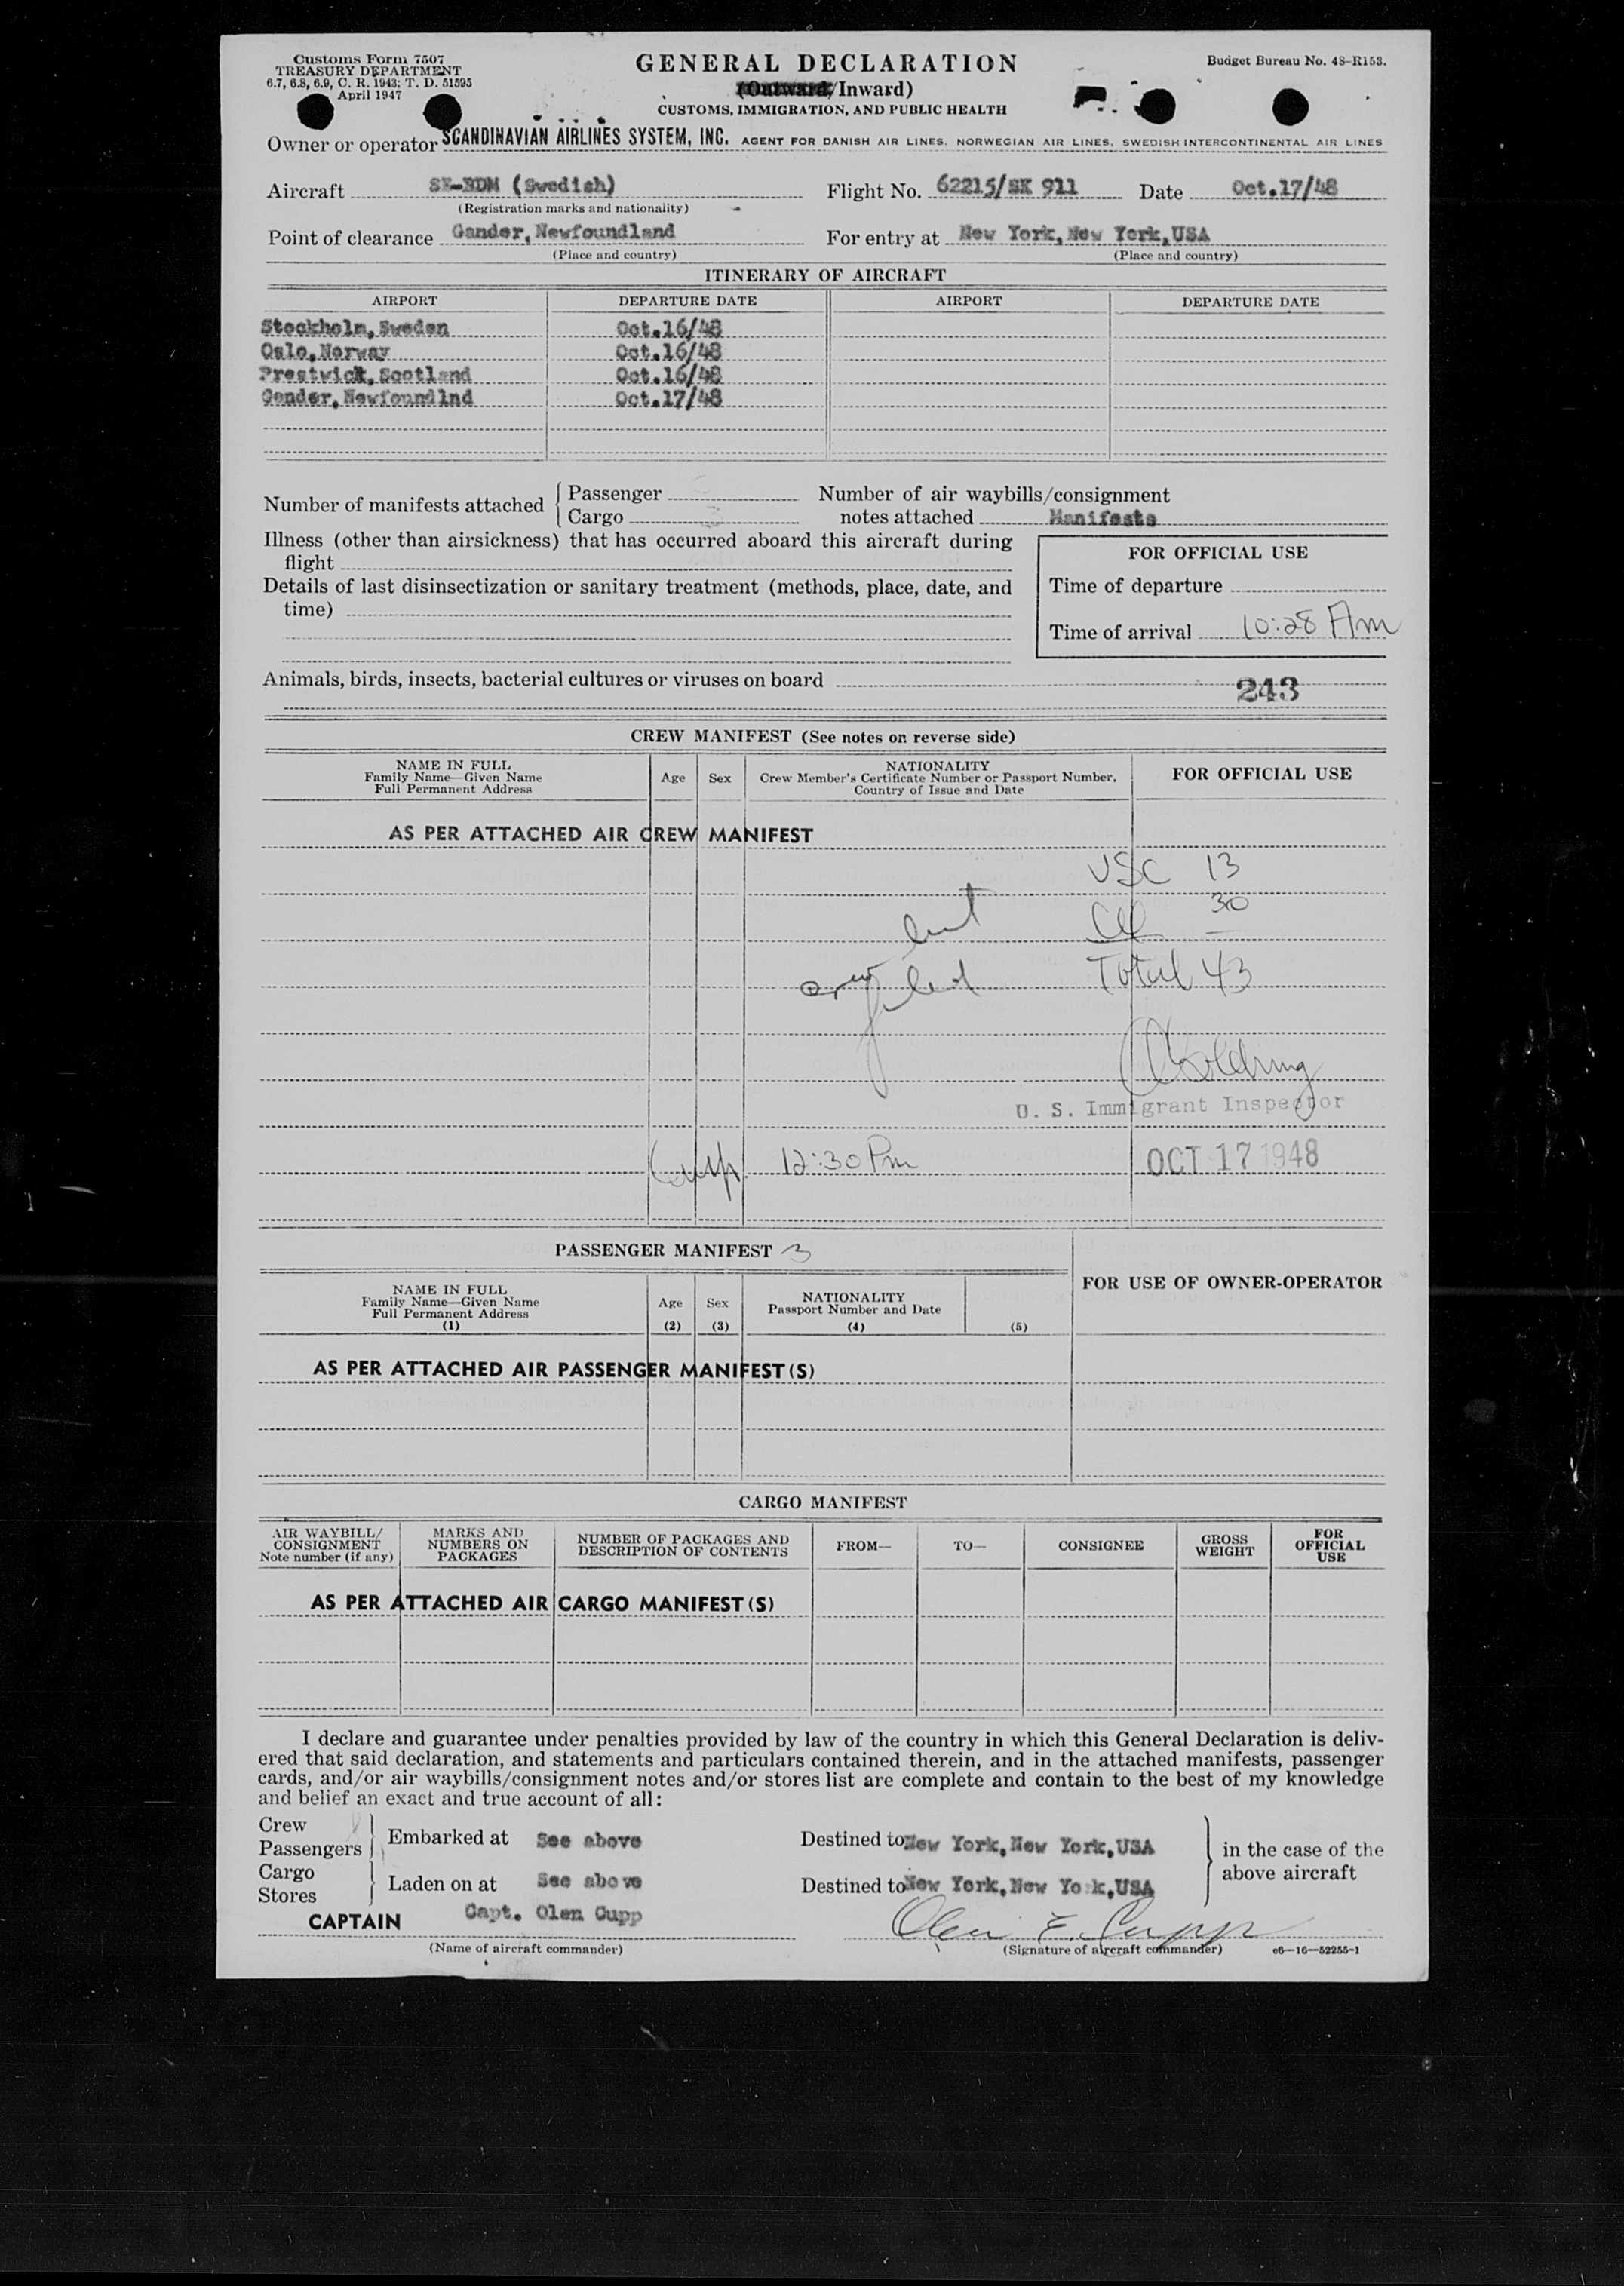 Customs Form 7507
TREASURY DEPARTMENT
6.7, 6.8, 6.9, C. R. 1943; T. D. 51595
April 1947
GENERAL DECLARATION
(Outward/Inward)
CUSTOMS, IMMIGRATION, AND PUBLIC HEALTH
Budget Bureau No. 48-R153.
Owner or operator SCANDINAVIAN AIRLINES SYSTEM, INC. AGENT FOR DANISH AIR LINES, NORWEGIAN AIR LINES, SWEDISH INTERCONTINENTAL AIR LINES
Aircraft SE-BDM (Swedish) Flight No. 62215/SK 911 Date Oct.17/48
(Registration marks and nationality)
Point of clearance Gander, Newfoundland For entry at New York, New York, USA
(Place and country) (Place and country)
ITINERARY OF AIRCRAFT
AIRPORT DEPARTURE DATE AIRPORT DEPARTURE DATE
Stockholm, Sweden Oct.16/48
Oslo, Norway Oct.16/48
Prestwick, Scotland Oct.16/48
Gander, Newfoundlnd Oct.17/48
Number of manifests attached Passenger Cargo
Number of air waybills/consignment
notes attached Manifests
Illness (other than airsickness) that has occurred aboard this aircraft during
flight
Details of last disinsectization or sanitary treatment (methods, place, date, and
time)
FOR OFFICIAL USE
Time of departure
Time of arrival 10:28 Am
Animals, birds, insects, bacterial cultures or viruses on board
243
CREW MANIFEST (See notes on reverse side)
NAME IN FULL
Family Name—Given Name
Full Permanent Address
Age
Sex
NATIONALITY
Crew Member's Certificate Number or Passport Number,
Country of Issue and Date
FOR OFFICIAL USE
AS PER ATTACHED AIR CREW MANIFEST
USC 13
30
crew list
filed
Total 43
U. S. Immigrant Inspector
Cupp 12:30 Pm
OCT 17 1948
PASSENGER MANIFEST 3
NAME IN FULL
Family Name—Given Name
Full Permanent Address
(1)
Age
(2)
Sex
(3)
NATIONALITY
Passport Number and Date
(4)
(5)
FOR USE OF OWNER-OPERATOR
AS PER ATTACHED AIR PASSENGER MANIFEST(S)
CARGO MANIFEST
AIR WAYBILL/
CONSIGNMENT
Note number (if any)
MARKS AND
NUMBERS ON
PACKAGES
NUMBER OF PACKAGES AND
DESCRIPTION OF CONTENTS
FROM—
TO—
CONSIGNEE
GROSS
WEIGHT
FOR
OFFICIAL
USE
AS PER ATTACHED AIR CARGO MANIFEST(S)
I declare and guarantee under penalties provided by law of the country in which this General Declaration is deliv-
ered that said declaration, and statements and particulars contained therein, and in the attached manifests, passenger
cards, and/or air waybills/consignment notes and/or stores list are complete and contain to the best of my knowledge
and belief an exact and true account of all:
Crew
Passengers
Embarked at See above Destined to New York, New York, USA
Cargo
Stores
Laden on at See above Destined to New York, New Yo k, USA
in the case of the
above aircraft
CAPTAIN Capt. Olen Cupp Olen E. Cupp
(Name of aircraft commander) (Signature of aircraft commander) c6—16—52255-1